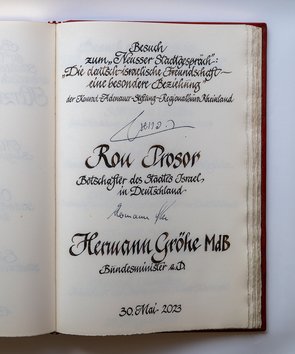 Besuch
zum „Neusser Stadtgespräch":
„Die deutsch-israelische Freundschaft –
eine besondere Beziehung
der Konrad-Adenauer-Stiftung - Regionalbüro Rheinland
Ron Prosor
Botschafter des Staates Israel
in Deutschland
Hermann
Hermann Gröhe MdB
Bundesminister a.D.
30. Mai - 2023